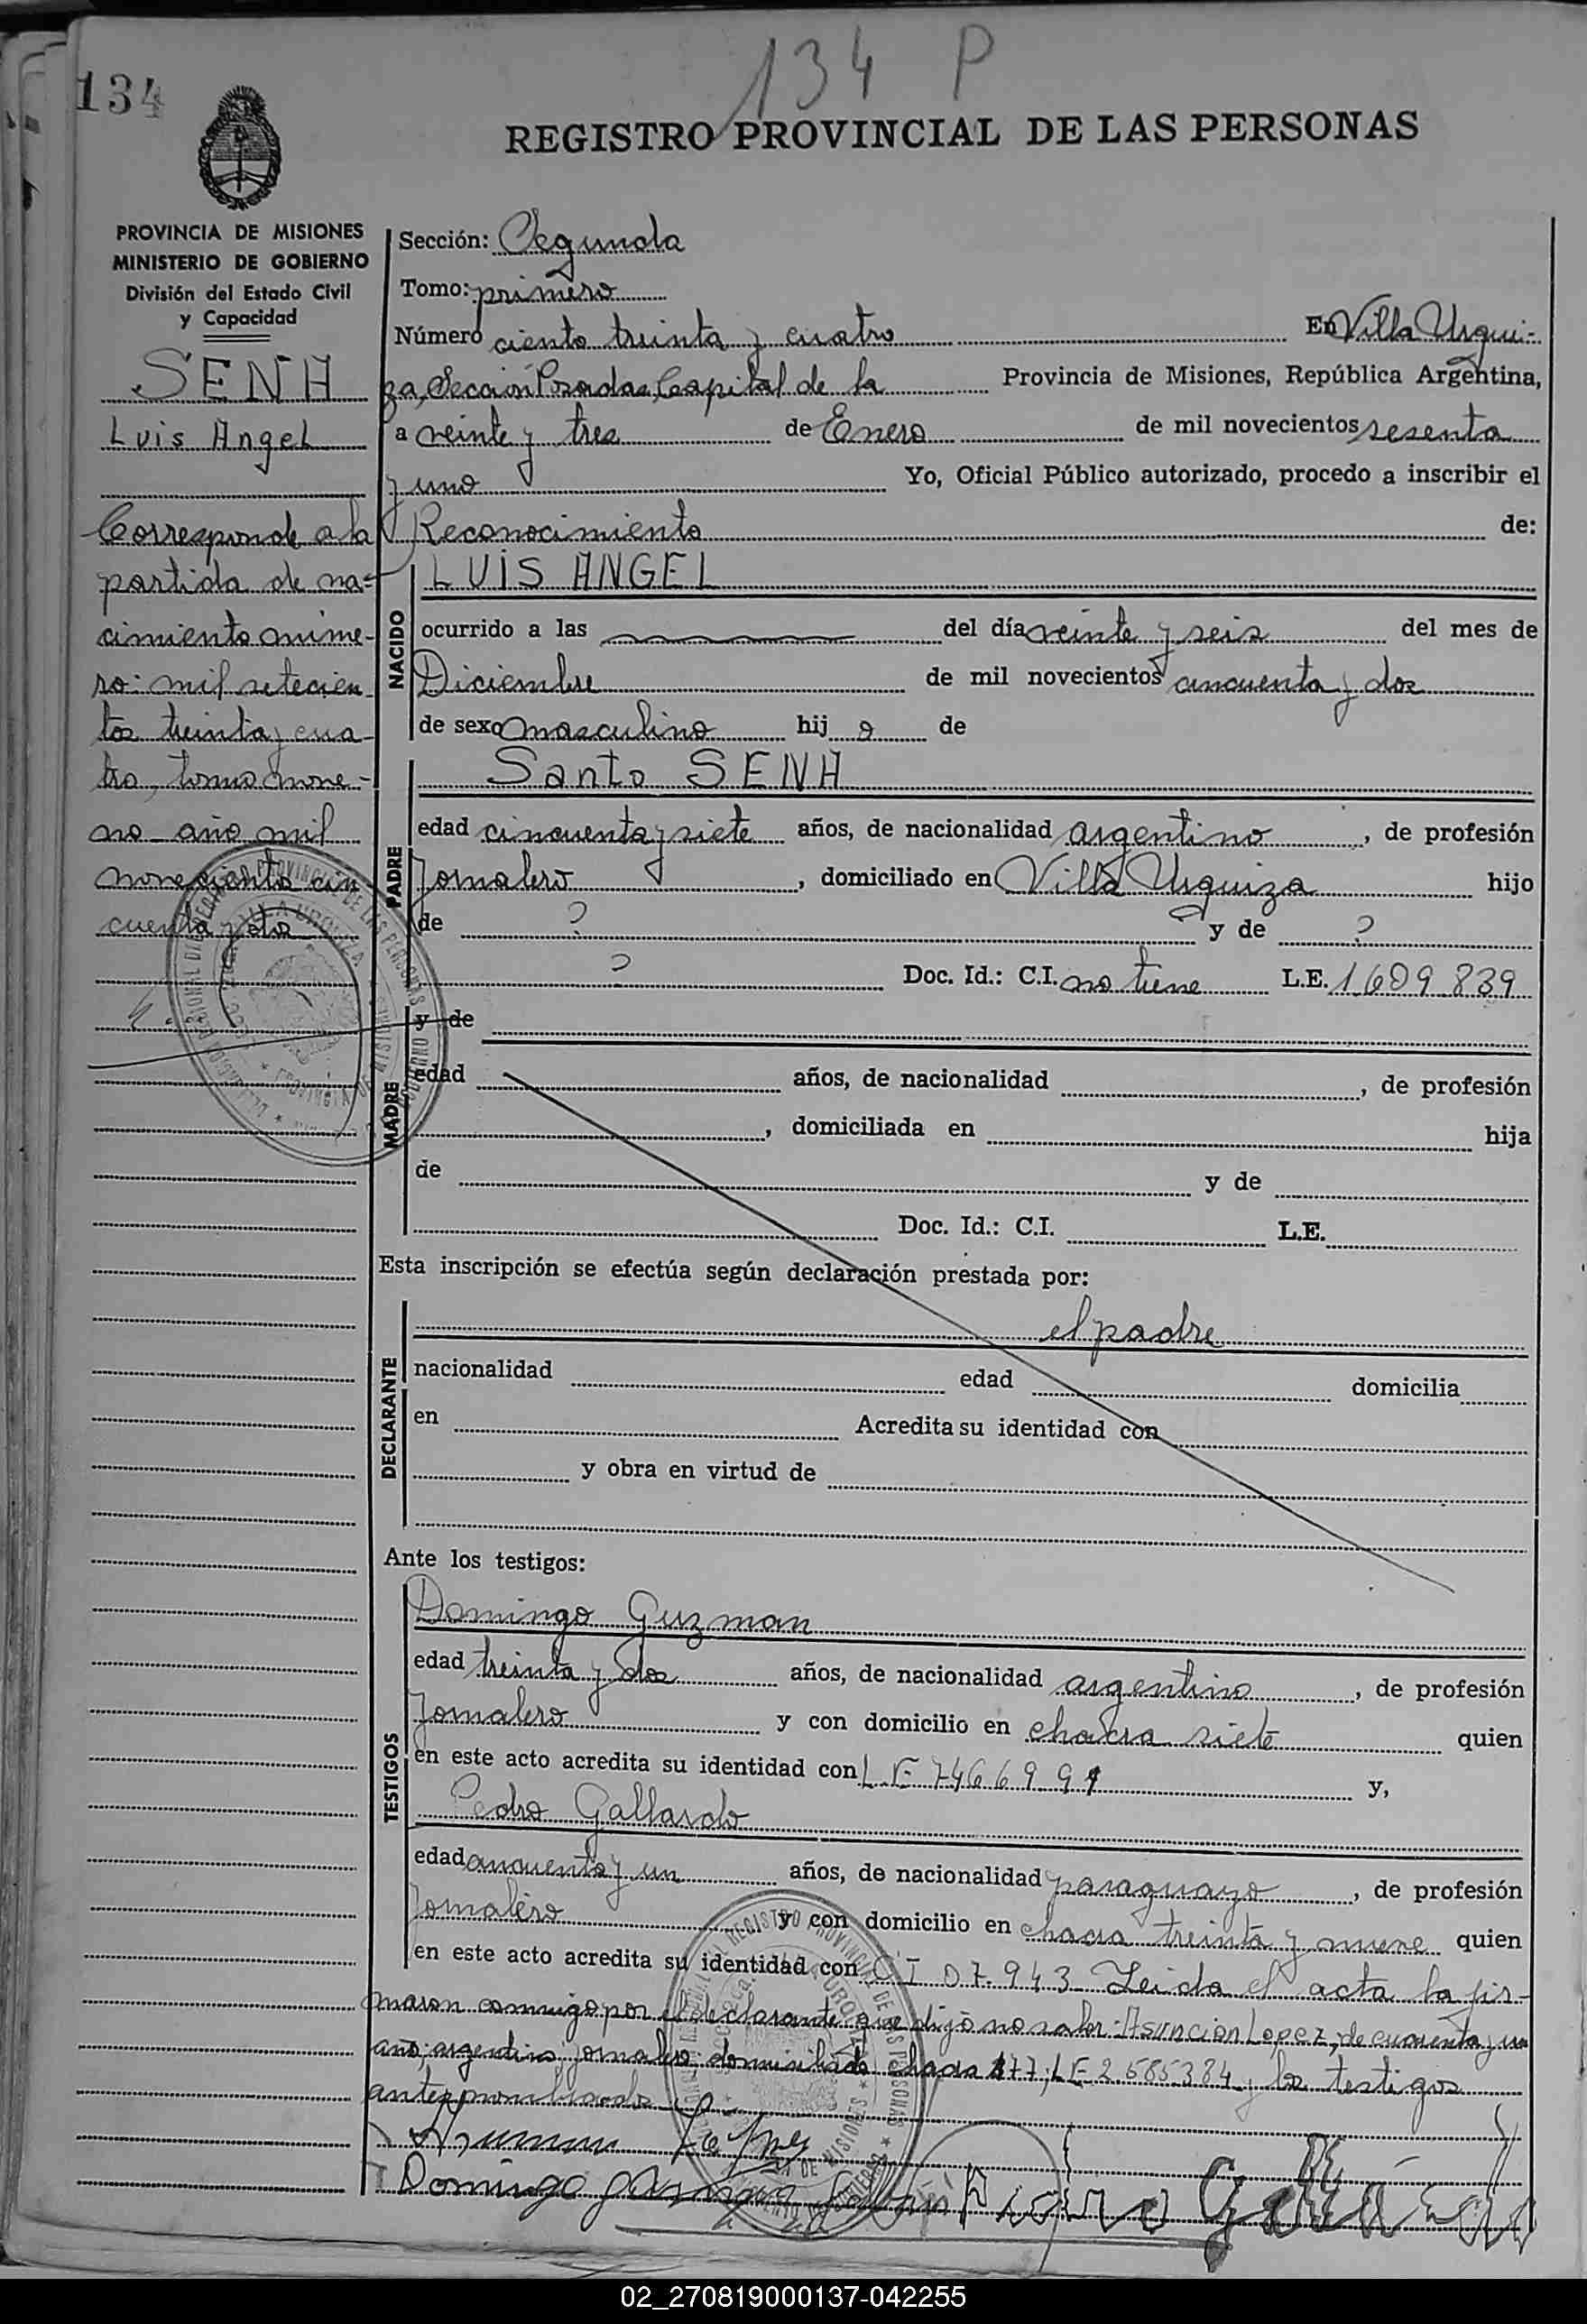 134 P
134
REGISTRO PROVINCIAL DE LAS PERSONAS
PROVINCIA DE MISIONES
MINISTERIO DE GOBIERNO
División del Estado Civil
y Capacidad
SENA
Luis Angel
Corresponde a la
partida de na-
cimiento núme-
ro: mil setecien-
tos treinta y cua-
tro, tomo nove-
no año mil
novecientos cin
cuenta y dos
Sección: Segunda
Tomo: primero
Número ciento treinta y cuatro En Villa Urqui-
za, Sección Posadas, Capital de la Provincia de Misiones, República Argentina,
a veinte y tres de Enero de mil novecientos sesenta
y uno Yo, Oficial Público autorizado, procedo a inscribir el
Reconocimiento de:
NACIDO
LUIS ANGEL
ocurrido a las del día veinte y seis del mes de
Diciembre de mil novecientos cincuenta y dos
de sexo masculino hij o de
PADRE
Santo SENA
edad cincuenta y siete años, de nacionalidad argentino, de profesión
Jornalero, domiciliado en Villa Urquiza hijo
de ? y de ?
? Doc. Id.: C.I. no tiene L.E. 1.609.839
y de
MADRE
edad años, de nacionalidad , de profesión
, domiciliada en hija
de y de
Doc. Id.: C.I. L.E.
Esta inscripción se efectúa según declaración prestada por:
DECLARANTE
el padre
nacionalidad edad domicilia
en Acredita su identidad con
y obra en virtud de
Ante los testigos:
TESTIGOS
Domingo Guzman
edad treinta y dos años, de nacionalidad argentino, de profesión
Jornalero y con domicilio en chacra siete quien
en este acto acredita su identidad con L E 7466991 y,
Pedro Gallardo
edad cincuenta y un años, de nacionalidad paraguayo, de profesión
Jornalero y con domicilio en chacra treinta y nueve quien
en este acto acredita su identidad con C I 07.943 Leida el acta la fir-
maron conmigo por el declarante que dijo no saber: Asuncion Lopez, de cuarenta y un
año, argentino, jornalero domiciliado chacra 177, LE 2.585.384 y los testigos
antes nombrados
Domingo
Pedro Gallardo
02_270819000137-042255